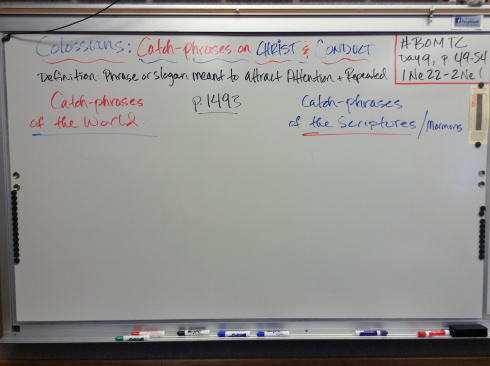 Colossians: Catch-phrases on CHRIST & CONDUCT
Definition: Phrase or slogan meant to attract Attention + Repeated
#BOMTC
Day 9, p 49-54
1 Ne 22-2 Ne 1
Catch-phrases
of the World.
p.1493
Catch-phrases
of the Scriptures/Mormons